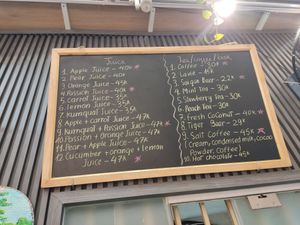 Juice
1. Apple Juice - 40k
2. Pear Juice - 40k
3. Orange Juice - 45k
4. Passion Juice - 40k
5. Carrot Juice - 35k
6. Lemon Juice - 35k
7. Kumquat Juice - 35k
8. Apple + carrot Juice - 47k
9. Kumquat + Passion Juice - 47k
10. Passion + Orange Juice - 47k
11. Pear + Apple Juice - 47k
12. Cucumber + orange + lemon
Juice - 47k
1. Coffee - 30k
2. Lavie - 15k
3. Saigon Beer - 22k
4. Mint Tea - 30k
5. Strawberry Tea - 30k
6. Peach Tea - 30k
7. Fresh Coconut - 40k
8. Tiger Beer - 29k
9. Salt Coffee - 45k
(Cream, condensed milk, cocoa
Powder, Coffee)
10. Hot chocolate - 45k